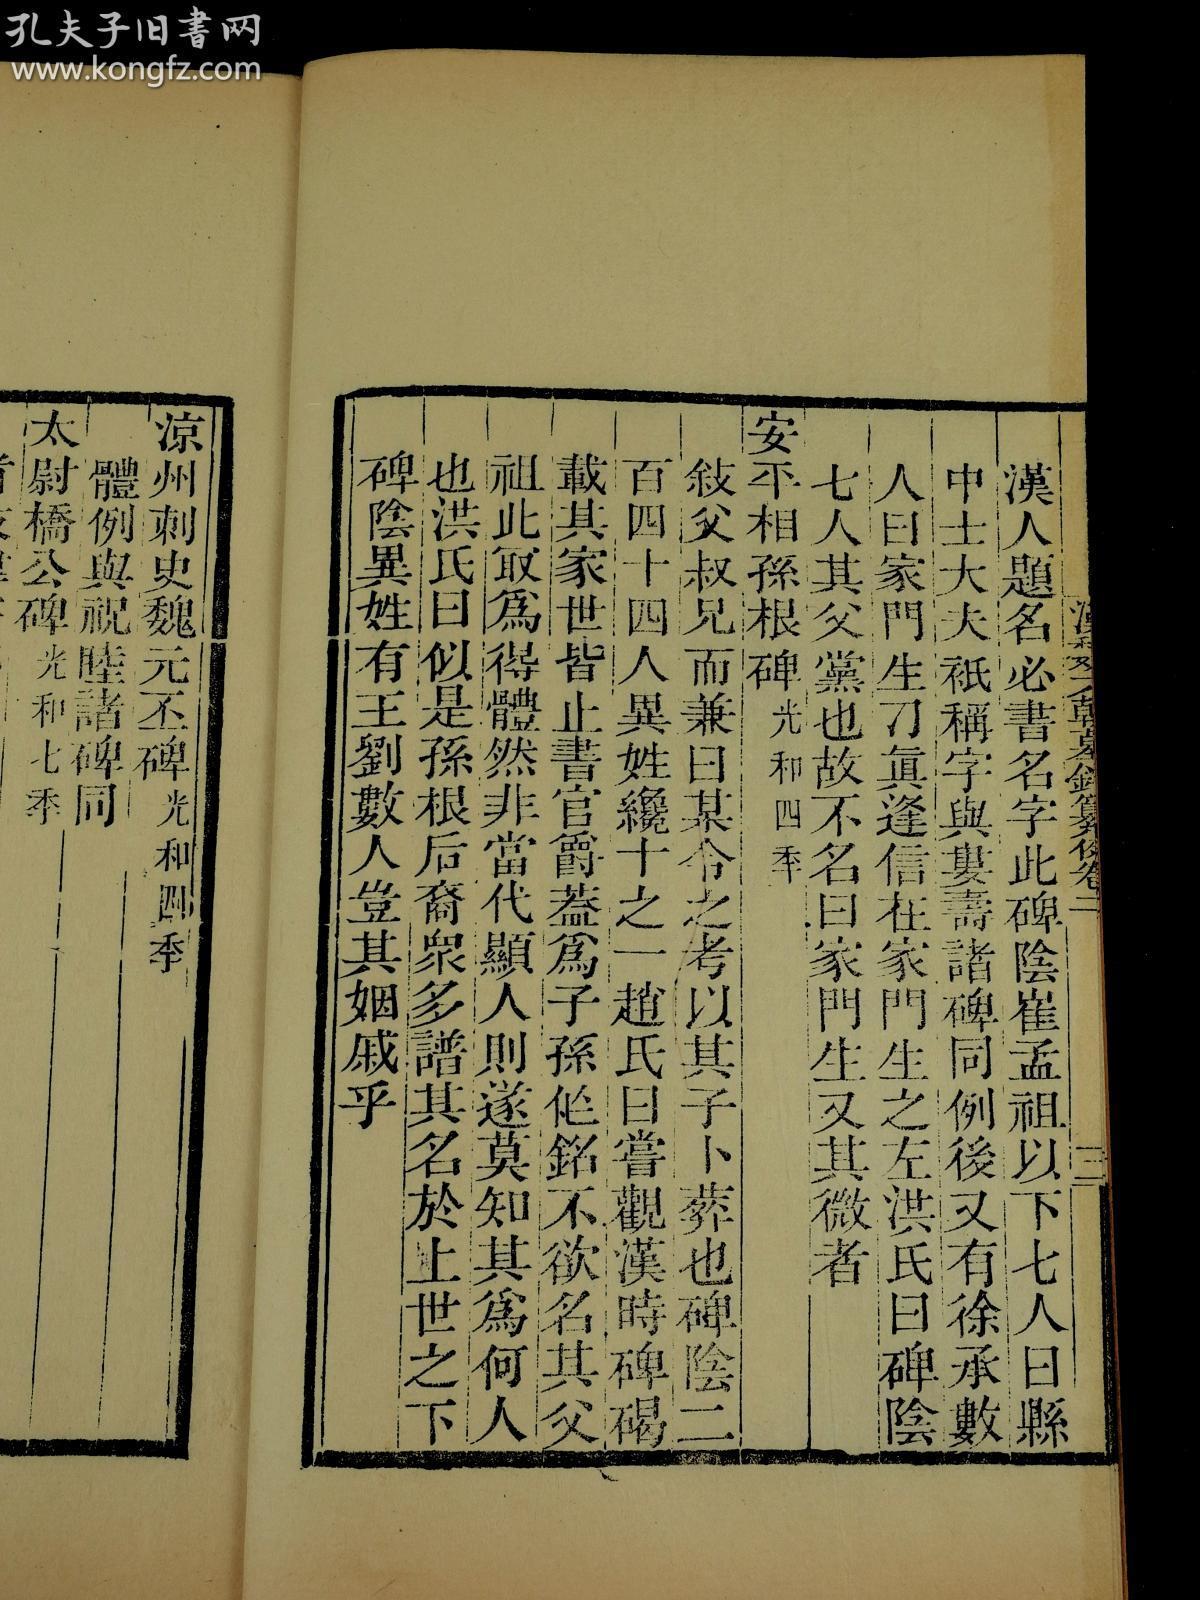 孔夫子旧書网
www.kongfz.com
漢人題名必書名字此碑陰崔孟祖以下七人曰縣
中士大夫祇稱字與婁壽諸碑同例後又有徐承數
人曰家門生刀眞逢信在家門生之左洪氏曰碑陰
七人其父黨也故不名曰家門生又其微者
安平相孫根碑 光和四秊
敍父叔兄而兼曰某令之考以其子卜葬也碑陰二
百四十四人異姓纔十之一趙氏曰嘗觀漢時碑碣
載其家世皆止書官爵葢爲子孫作銘不欲名其父
祖此取爲得體然非當代顯人則遂莫知其爲何人
也洪氏曰似是孫根后裔衆多譜其名於上世之下
碑陰異姓有王劉數人豈其姻戚乎
涼州刺史魏元丕碑 光和四秊
體例與祝睦諸碑同
太尉橋公碑 光和七秊